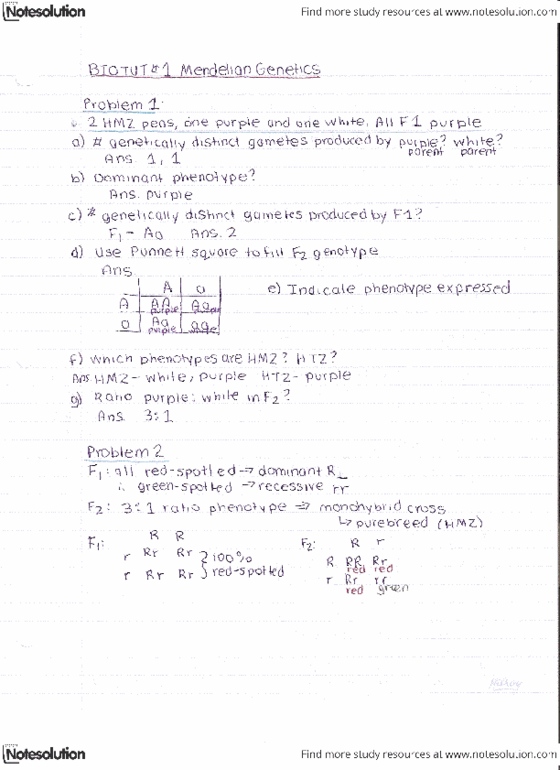 Notesolution
Find more study resources at www.notesolution.com
BIOTUT#1 Mendelian Genetics
Problem 1:
2 HMZ peas, one purple and one white. All F1 purple
a) # genetically distinct gametes produced by purple? white?
parent parent
Ans 1, 1
b) Dominant phenotype?
Ans. purple
c) # genetically distinct gametes produced by F1?
F1 - Aa Ans. 2
d) Use Punnett square to fill F2 genotype
Ans
A a
e) Indicate phenotype expressed
A AA Aa
purple purple
a Aa aa
purple
f) Which phenotypes are HMZ? HTZ?
Ans. HMZ - white, purple HTZ - purple
g) Ratio purple: white in F2?
Ans. 3:1
Problem 2
F1: all red-spotted → dominant R_
∴ green-spotted → recessive rr
F2: 3:1 ratio phenotype ⇒ monohybrid cross
↳ purebreed (HMZ)
F1: R R
r Rr Rr } 100%
r Rr Rr red-spotted
F2: R r
R RR Rr
red red
r Rr rr
red green
Notesolution
Find more study resources at www.notesolution.com